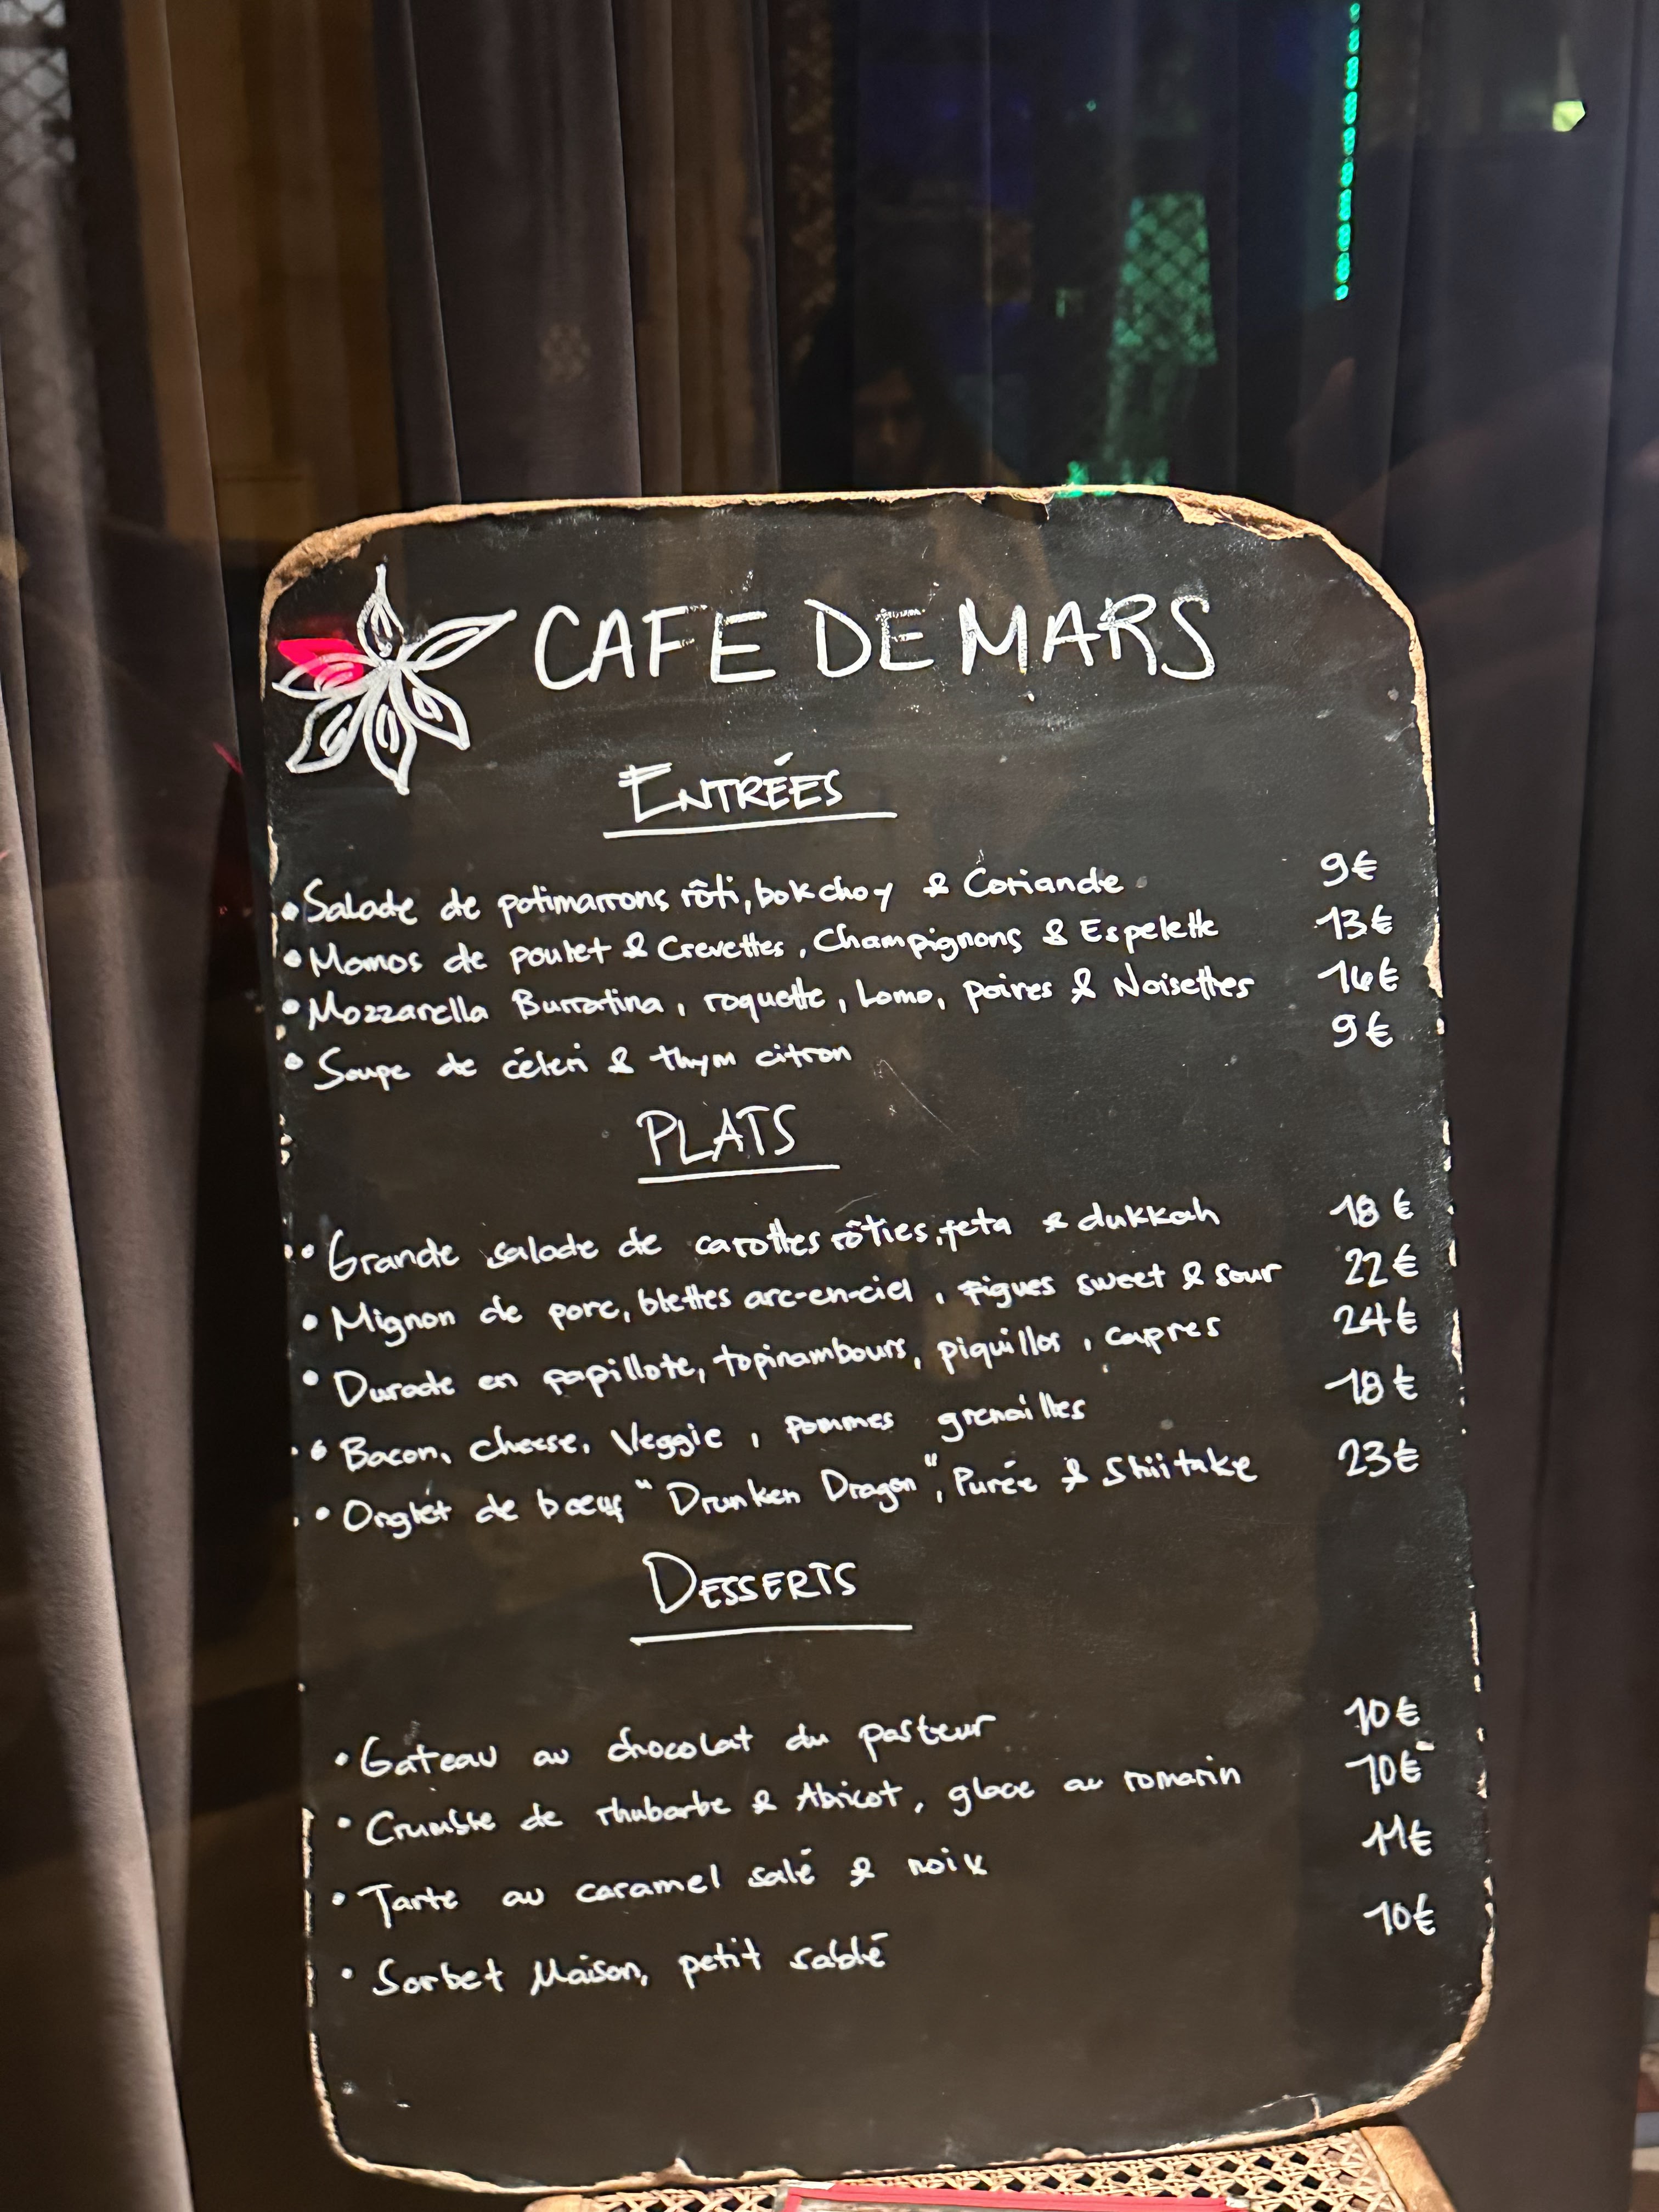 CAFE DE MARS
ENTRÉES
• Salade de potimarrons rôti, bokchoy & Coriande. 9€
• Momos de poulet & Crevettes, Champignons & Espelette 13€
• Mozzarella Burratina, roquette, Lomo, poires & Noisettes 14€
• Soupe de céleri & thym citron 9€
PLATS
• Grande salade de carottes rôties, feta & dukkah 18€
• Mignon de porc, blettes arc-en-ciel, figues sweet & sour 22€
• Durade en papillote, topinambours, piquillos, capres 24€
• Bacon, cheese, Veggie, pommes grenailles 18€
• Onglet de bœuf "Drunken Dragon", Purée & Shiitake 23€
DESSERTS
• Gateau au chocolat du pasteur 10€
• Crumble de rhubarbe & Abricot, glace au romarin 10€
• Tarte au caramel salé & noix 11€
• Sorbet Maison, petit sablé 10€